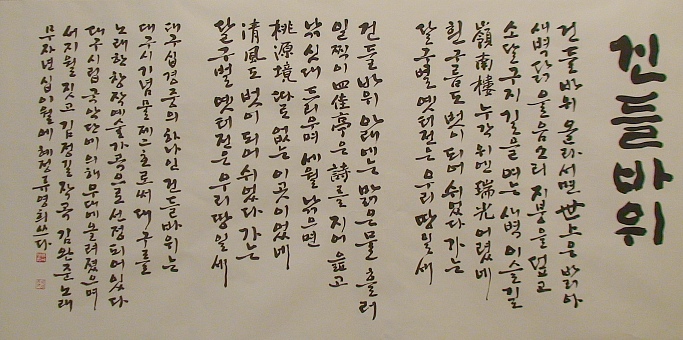 건들바위
건들바위 올라서면 世上은 밝아
새벽닭 울음소리 지붕을 덮고
소달구지 길을 여는 새벽 이슬길
嶺南樓 누각위엔 瑞光 어렸네
흰구름도 벗이되어 쉬었다 가는
달구벌 옛터전은 우리 땅일세
건들바위 아래에는 맑은물 흘러
일찍이 四佳亭은 詩를 지어 읊고
낚싯대 드리우며 세월 낚으면
桃源境 따로없는 이곳이었네
清風도 벗이되어 쉬었다 가는
달구벌 옛터전은 우리 땅일세
대구십경중의 하나인 건들바위는
대구시기념물제2호로써 대구를
노래한 창작예술가곡으로 선정되어있다
대구시립국악단에 의해 무대에 올려졌으며
서지월 짓고 김정길 작곡 김완준 노래
무자년 십이월에 혜정 류영희 쓰다